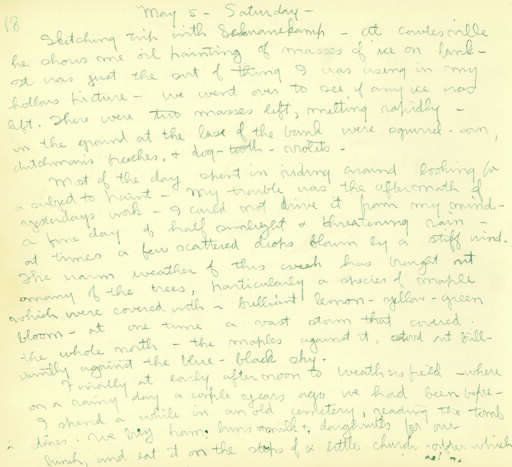 18
May 5 - Saturday -
Sketching trip with Schwanekamp - at Cowlesville
he shows me oil painting of masses of ice on bank -
it was just the sort of thing I was using in my
hollows picture - we went over to see if any ice was
left. There were two masses left, melting rapidly -
in the ground at the base of the bank were squirrel-corn,
dutchman's breeches, + dog-tooth-violets -
Most of the day spent in riding around looking for
a subject to paint - my trouble was the aftermath of
yesterdays work - I could not drive it from my mind -
a fine day of half sunlight & threatening rain -
at times a few scattered drops blown by a stiff wind.
The warm weather of this week has brought out
many of the trees, particularly a species of maple
which were covered with a brilliant lemon-yellow-green
bloom - at one time a vast storm that covered
the whole north - the maples against it, stood out brill-
iantly against the blue-black sky.
Finally at early afternoon to Weathersfield - where
on a rainy day a couple years ago we had been before -
I spend a while in an old cemetery, reading the tomb
stones. We buy ham, buns milk & doughnuts for our
lunch, and eat it on the steps of a little church - after which